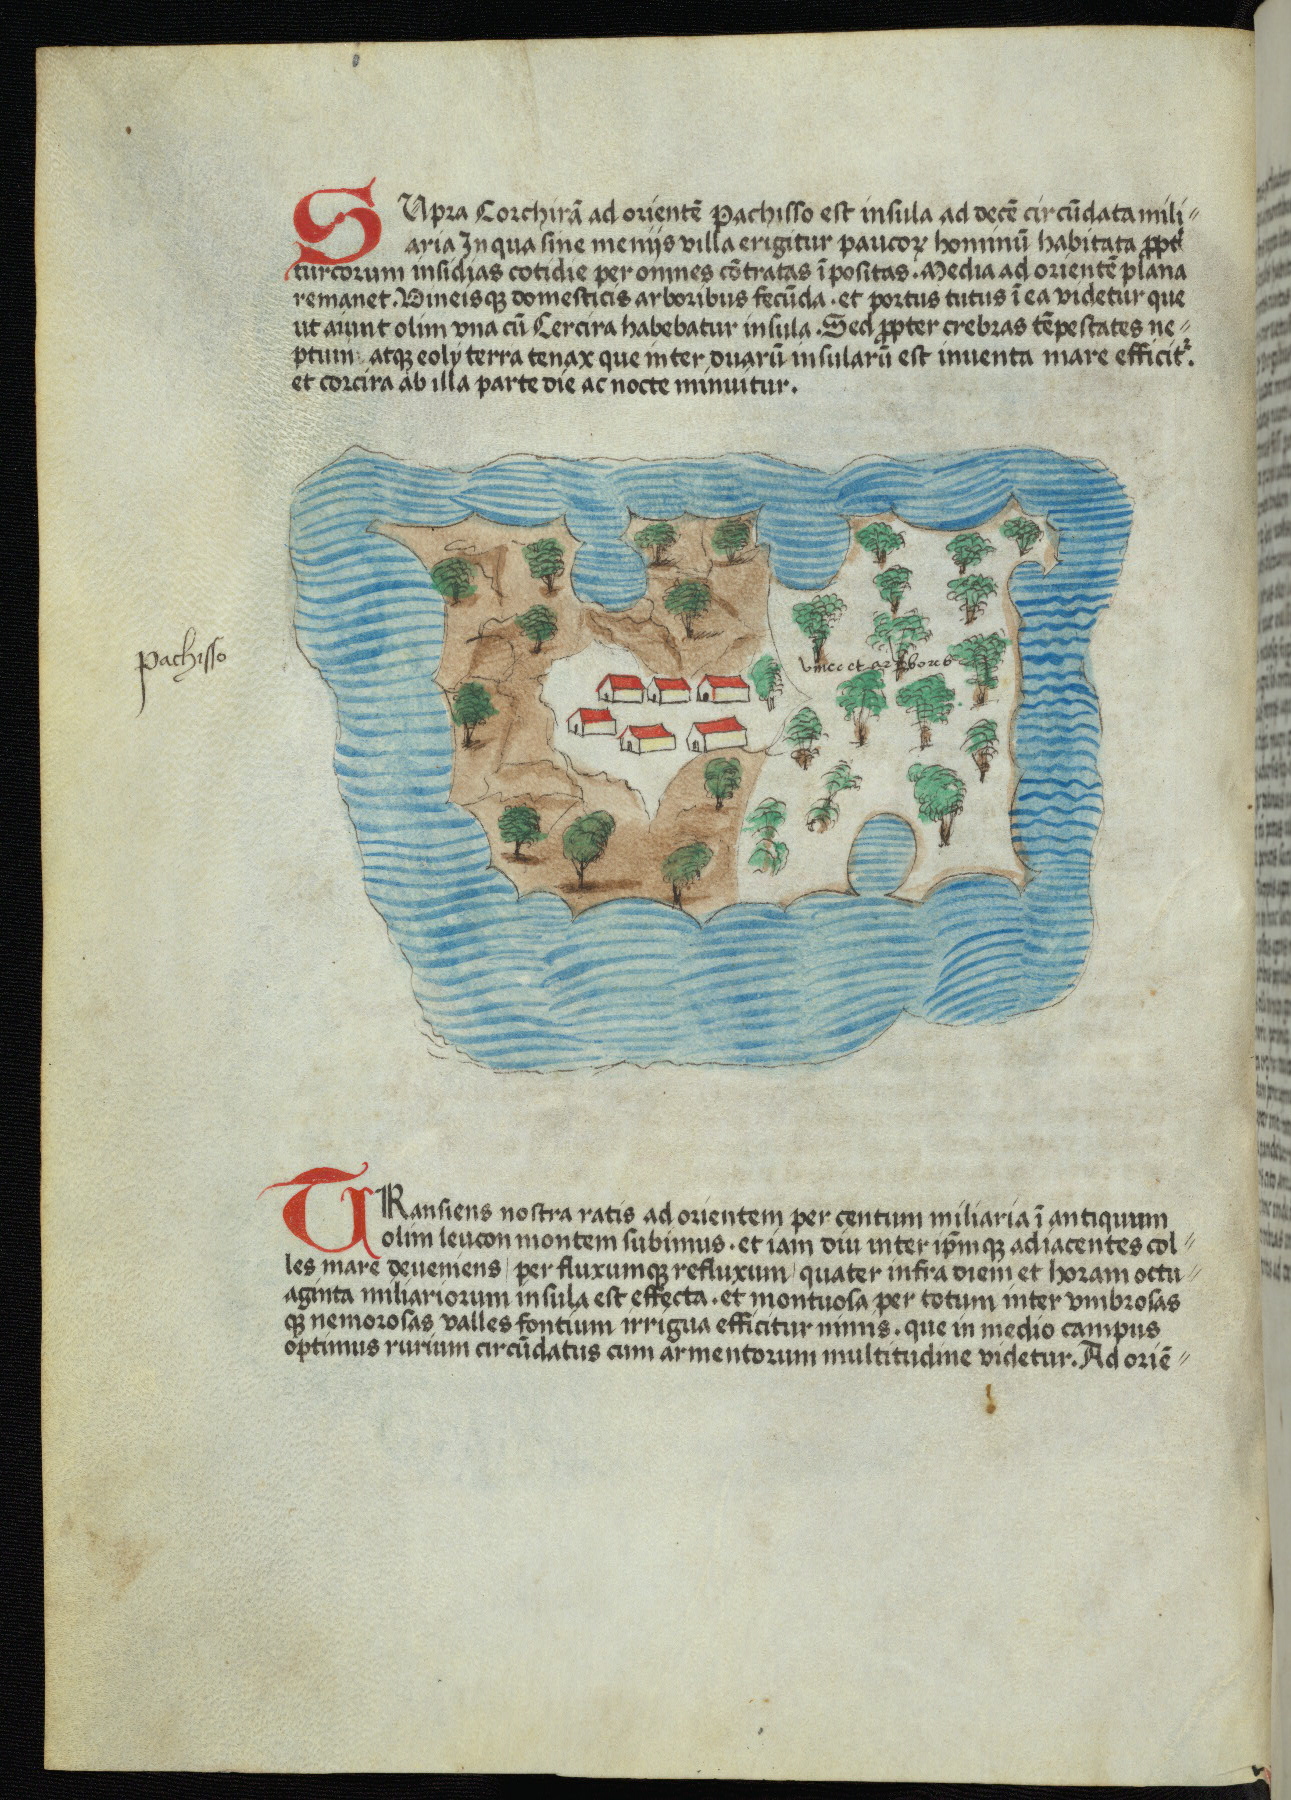 SUpra Corchirã ad orientẽ Pachisso est insula ad decẽ circũdata mili⸗
aria In qua sine menijs villa erigitur paucoꝝ hominũ habitata ꝓpt̃
turcorum insidias cotidie per omnes cõtratas ĩpositas. Media ad orientẽ plana
remanet. Vineisqꝫ domesticis arboribus fecũda. et portus tutus ĩ ea videtur que
ut aiunt olim vna cũ Cercira habebatur insula. Sed ꝓpter crebras tẽpestates ne⸗
ptuni atqꝫ eoly terra tenax que inter duarũ insularũ est inventa mare efficit᷑.
et corcira ab illa parte die ac nocte minuitur.
pachisso
vinee et arbores
TRansiens nostra ratis ad orientem per centum miliaria ĩ antiquum
olim leucon montem subimus. et iam diu inter ip̃mqꝫ adiacentes col⸗
les mare deveniens / per fluxumqꝫ refluxum / quater infra diem et horam octu⸗
aginta miliariorum insula est effecta. et montuosa per totum inter vmbrosas
qꝫ nemorosas valles fontium irrigua efficitur nimis. que in medio campus
optimus rurium circũdatus cum armentorum multitudine videtur. Ad oriẽ⸗